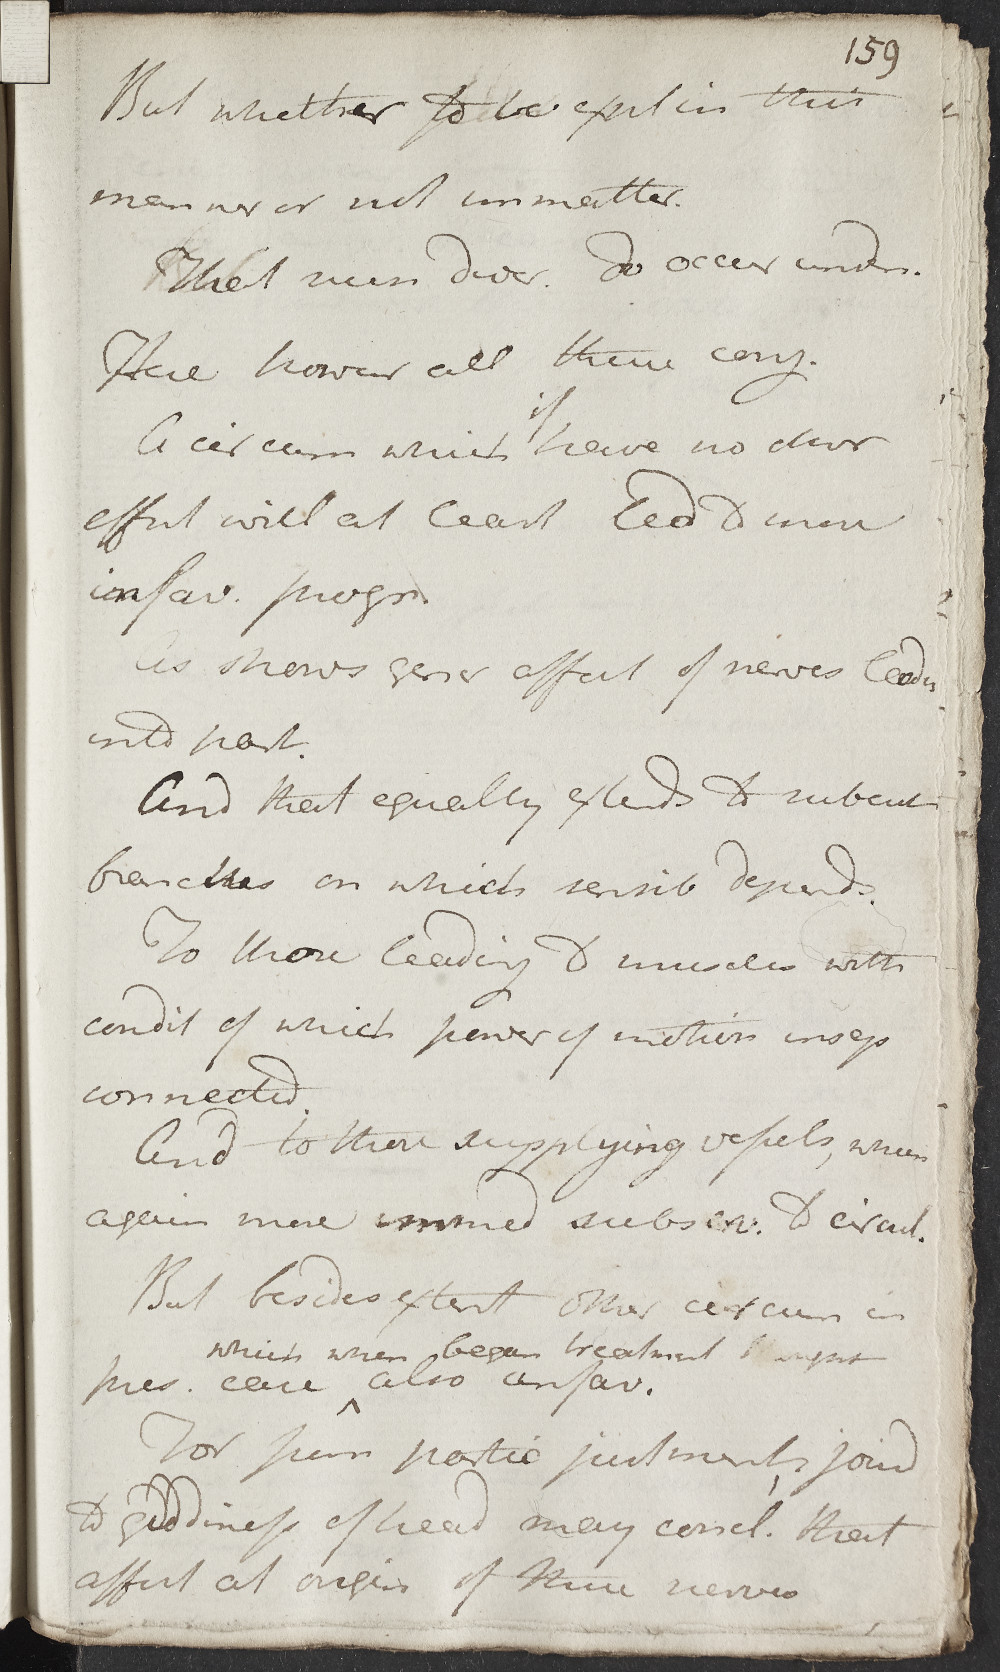 159
But whether to be expl in this
manner or not unmatter.
That num diver. do occur undn.
Here howev all these conj.
A circum which if have no other
effect will at least lead to more
unfav. progn.
As shows gener affect of nerves leadin
into part.
And that equally extends to subcut
branches on which sensib depends.
To those leading to muscles with
condit of which power of motion insep
connected
And to those supplying vessels, when
again more immed subserv. to circul.
But besides extent other circum in
which when began treatment thought
pres. case also unfav.
For from partic judments joind
to giddiness of head may concl. that
affect at origin of these nerves